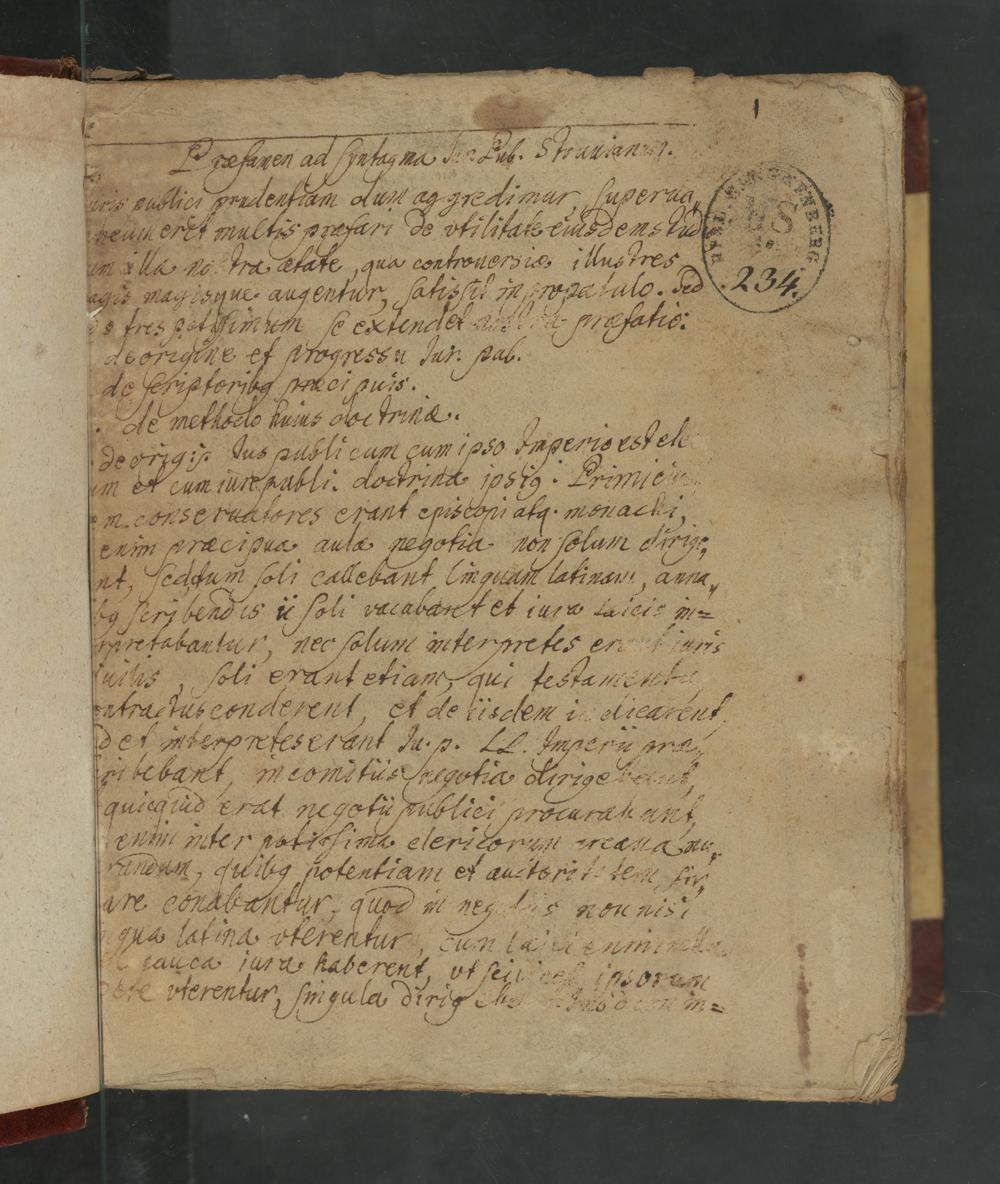 1
Præfamen ad Syntagma Jur. Pub. Struuianum.
BYBL. WINDHENBERG
234.
uris publici prudentiam dum aggredimur, superua„
neum erit multis præfari de vtilitate eiusdem. Stud
um illa nostra ætate, qua controuersiæ illustres
agis magisque augentur, satis sit in propatulo. Sed
tres potissimum se extendet nostra præfatio:
de origine et progressu Jur. pub.
de scriptoribq præcipuis.
de methodo huius doctrinæ.
de orig: Jus publicum cum ipso Imperio est
um et cum iure publi. doctrina ipsiq. Primi
conseruatores erant episcopi atq. monachi,
enim præcipua aulæ negotia non solum dirige„
nt, sed tum soli callebant linguam latinam, anna„
bq scribendis ii soli vacabant et iura laicis in=
rpretabantur, nec solum interpretes erant iuris
iuilis, soli erant etiam, qui testamenta,
ontractus conderent, et de iisdem iudicarent,
d et interpretes erant Ju. p. LL. Imperii præ„
ribebant, in comitiis negotia dirigebant,
quicquid erat negotii publici procurabant,
enim inter potissima clericorum arcana nu„
randum, quibq potentiam et auctoritatem fir„
are conabantur, quod in negotiis non nisi
ngua latina vterentur, cum laici enim
pauca iura haberent, vt scilicet ipsorum
vterentur, singula dirig in=